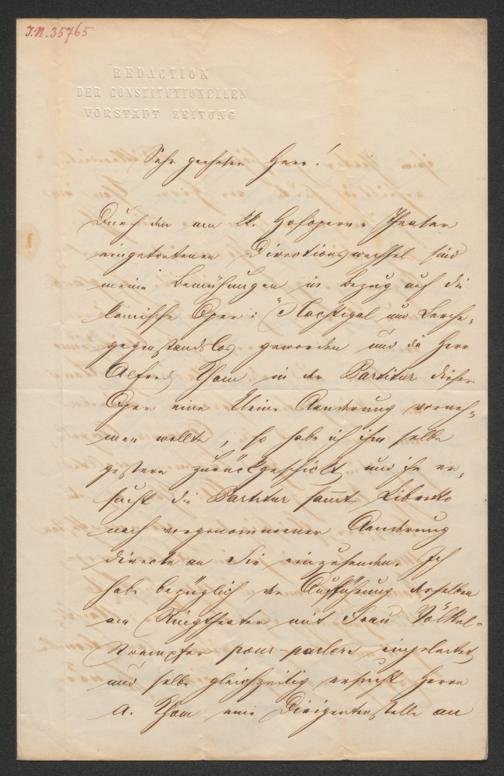 I.N. 35765
REDACTION
DER CONSTITUTIONELLEN
VORSTADT ZEITUNG
Sehr geehrter Herr!
Durch den am k. k. Hofopern-Theater
eingetretenen Directionswechsel sind
meine Bemühungen in bezug auf die
komische Oper: "Nachtigal und Lerche"
gegenstandslos geworden und da Herr
Alfred Thom in der Partitur dieser
Oper eine kleine Aenderung vorneh-
men wollte, so habe ich ihm selbe
gestern zurückgeschickt und ihn er-
sucht die Partitur sammt Libretto
nach vorgenommener Aenderung
directe an Sie einzusenden. Ich
habe bezüglich der Aufführung derselben
am Ringtheater mit Frau Völkel-
pour-parlers eingeleitet
und selbe gleichzeitig ersucht Herrn
A. Thom eine Dirigentenstelle an